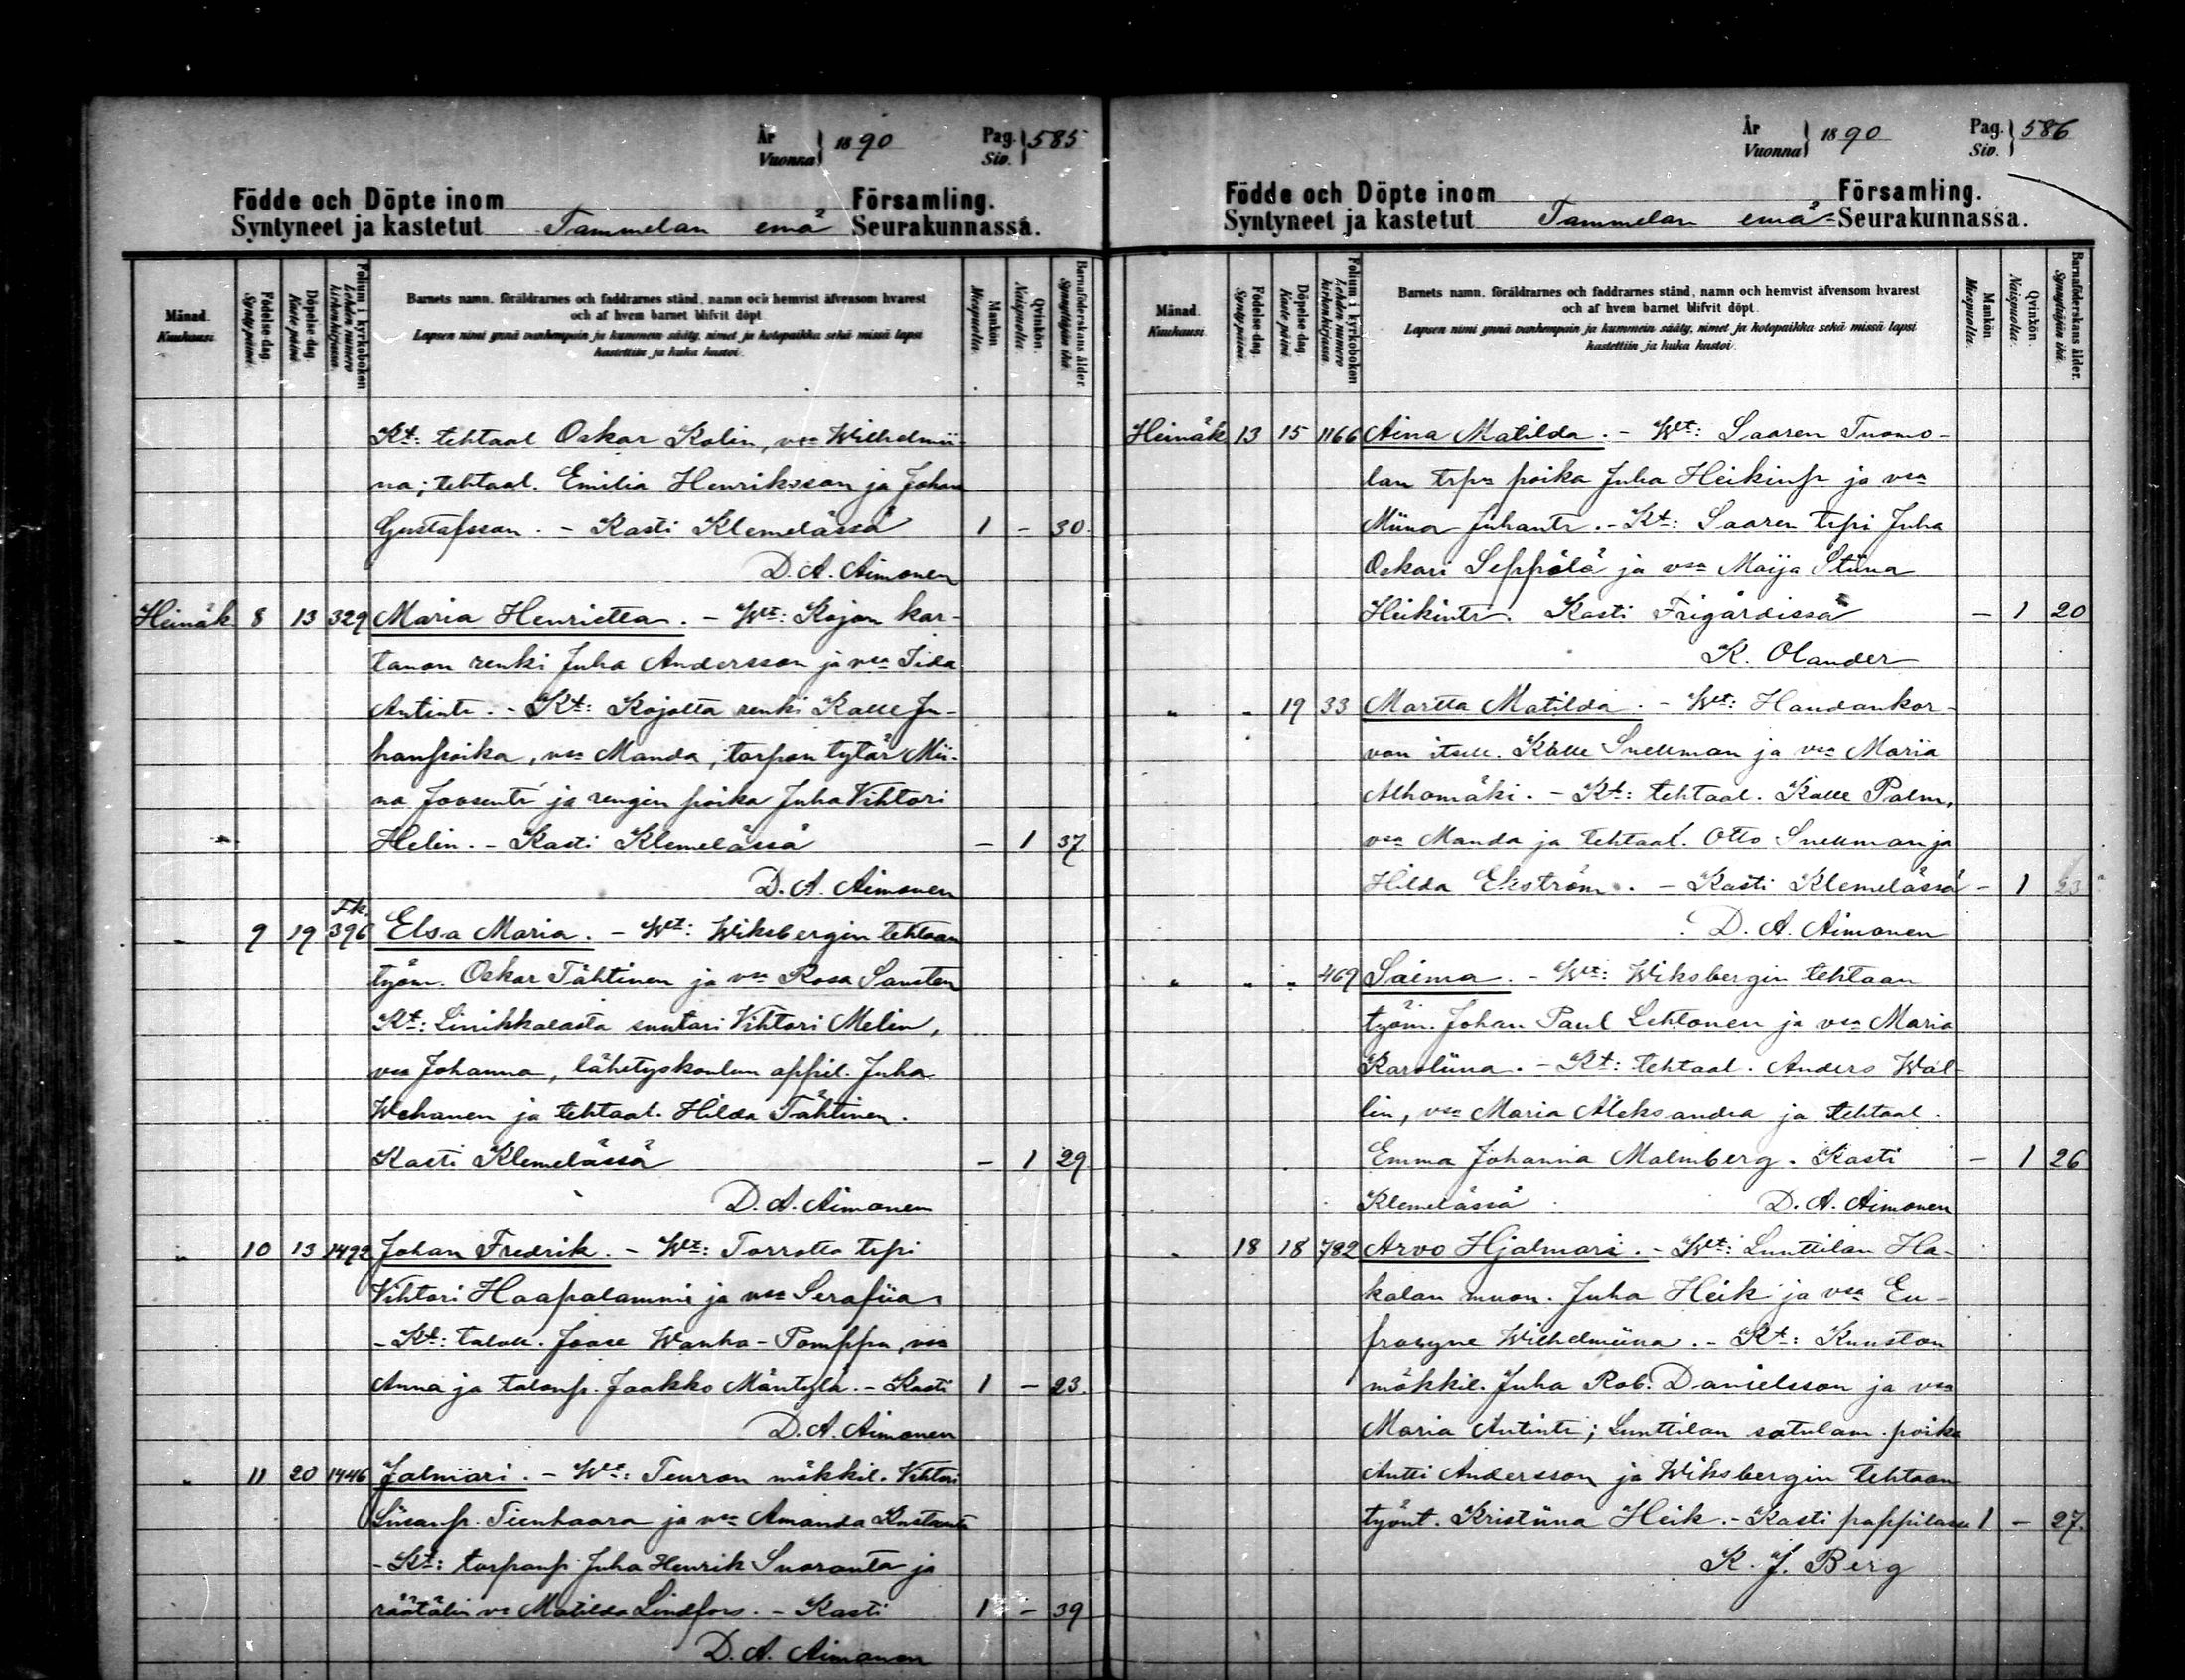 År
Vuonna } 1890
Pag.
Siv. } 585
Födde och Döpte inom Församling.
Syntyneet ja kastetut Tammelan emä Seurakunnassa.
Månad. Kuukausi.
Födelse-dag. Synty päivä.
Döpelse-dag. Kaste päivä.
Folium i kyrkoboken Lehden numero kirkonkirjassa.
Barnets namn, föräldrarnes och faddrarnes stånd, namn och hemvist äfvensom hvarest
och af hvem barnet blifvit döpt.
Lapsen nimi ynnä vanhempain ja kummein sääty, nimet ja kotopaikka sekä missä lapsi
kastettiin ja kuka kastoi.
Mankön. Miespuolia.
Qvinkön. Naispuolia.
Barnaföderskans ålder. Synnyttäjän ikä.
Kt: tehtaal Oskar Kolin, vsa Wilhelmii-
na; tehtaal. Emilia Henriksson ja Johan
Gustafsson. - Kasti Klemelässä 1 - 30.
D. A. Aimonen
Heinäk 8 13 329 Maria Henrietta. - Wt: Kojon kar-
tanon renki Juha Andersson ja vsa Iida
Antintr. - Kt: Kojolta renki Kalle Ju-
hanpoika, vsa Manda, torpan tytär Mii-
na Joosentr ja rengin poika Juha Vihtori
Helin. - Kasti Klemelässä - 1 37.
D. A. Aimonen
Fk.
" 9 19 396 Elsa Maria. - Wt: Wiksbergin tehtaan
työm. Oskar Tähtinen ja vsa Rosa Sansten
Kt: Linikkalasta suutari Vihtori Melin,
vsa Johanna, lähetyskoulun oppil. Juha
Wehanen ja tehtaal. Hilda Tähtinen.
Kasti Klemelässä - 1 29
D. A. Aimonen
" 10 13 1492 Johan Fredrik. - Wt: Torrolta trpi
Vihtori Haapalammi ja vsa Serafiia
- Kt: taloll. Joose Wanha-Pomppu, vsa
Anna ja talonp. Jaakko Mäntylä. - Kasti 1 - 23.
D. A. Aimonen
" 11 20 1446 Jalmari. - Wt: Teuron mökkil. Vihtori
Liisanp. Tienhaara ja vsa Amanda Kustaantr
- Kt: torpanp. Juha Henrik Suoranta ja
räätälin vo Matilda Lindfors. - Kasti 1 - 39
D. A. Aimonen
År
Vuonna } 1890
Pag.
Siv. } 586
Födde och Döpte inom Församling.
Syntyneet ja kastetut Tammelan emä- Seurakunnassa.
Månad. Kuukausi.
Födelse-dag. Synty päivä.
Döpelse-dag. Kaste päivä.
Folium i kyrkoboken Lehden numero kirkonkirjassa.
Barnets namn, föräldrarnes och faddrarnes stånd, namn och hemvist äfvensom hvarest
och af hvem barnet blifvit döpt.
Lapsen nimi ynnä vanhempain ja kummein sääty, nimet ja kotopaikka sekä missä lapsi
kastettiin ja kuka kastoi.
Mankön. Miespuolia.
Qvinkön. Naispuolia.
Barnaföderskans ålder. Synnyttäjän ikä.
Heinäk 13 15 1166 Aina Matilda. - Wt: Saaren Tuomo-
lan trpn poika Juha Heikinp ja vsa
Miina Juhantr. - Kt: Saaren trpi Juha
Oskari Seppälä ja vsa Maija Stiina
Heikintr. Kasti Frigårdissa - 1 20
K. Olander
" " 19 33 Martta Matilda. - Wt: Haudankor-
van itsell. Kalle Snellman ja vsa Maria
Alhomäki. - Kt: tehtaal. Kalle Palm,
vsa Manda ja tehtaal. Otto Snellman ja
Hilda Ekström. - Kasti Klemelässä - 1 23
D. A. Aimonen
" " " 469 Saima. - Wt: Wiksbergin tehtaan
työm. Johan Paul Lehtonen ja vsa Maria
Karoliina. - Kt: tehtaal. Anders Wal-
lin, vsa Maria Aleksandra ja tehtaal.
Emma Johanna Malmberg. Kasti - 1 26
Klemelässä D. A. Aimonen
" 18 18 782 Arvo Hjalmari. - Wt: Lunttilan Ha-
kalan muon. Juha Heik ja vsa Eu-
frosyne Wilhelmiina. - Kt: Kuuston
mökkil. Juha Rob. Danielsson ja vsa
Maria Antintr; Lunttilan satulam. poika
Antti Andersson ja Wiksbergin tehtaan
työnt. Kristiina Heik. - Kasti pappilassa 1 - 27.
K. J. Berg